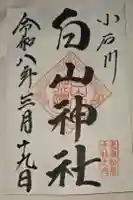 小石川
白山神社
令和八年三月十九日